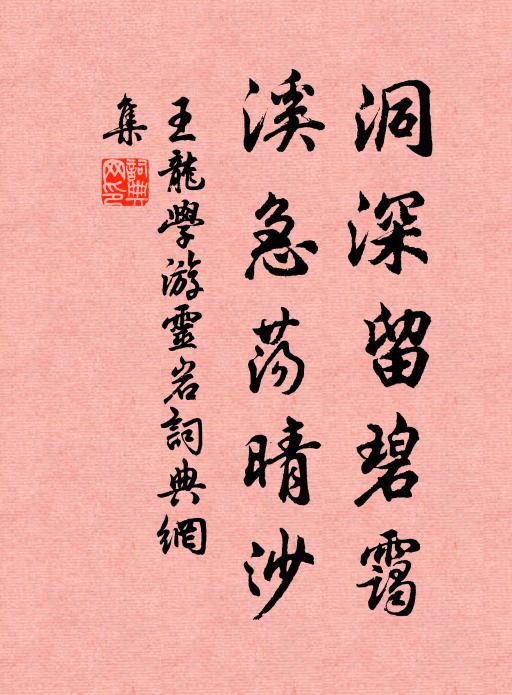 洞深留碧靄
溪急荡晴沙
王龍學游靈岩詞典網
集
詞典
网印